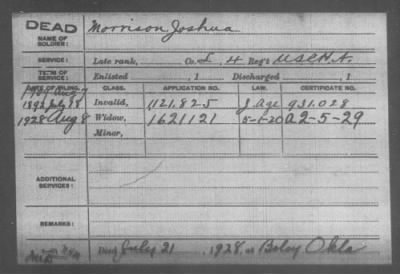 DEAD
NAME OF SOLDIER: Morrison Joshua
SERVICE: Late rank, Co. I, 4 Reg't U.S.C.H.A.
TERM OF SERVICE: Enlisted , 1 Discharged , 1
DATE OF FILING. CLASS. APPLICATION NO. LAW. CERTIFICATE NO.
1892 July 8 Invalid, 1121,825 J Age 931.028
1928 Aug 8 Widow, 1621121 5-1-20 A-2-5-29
Minor,
ADDITIONAL SERVICES:
REMARKS:
Died July 21, 1928, at Boley Okla